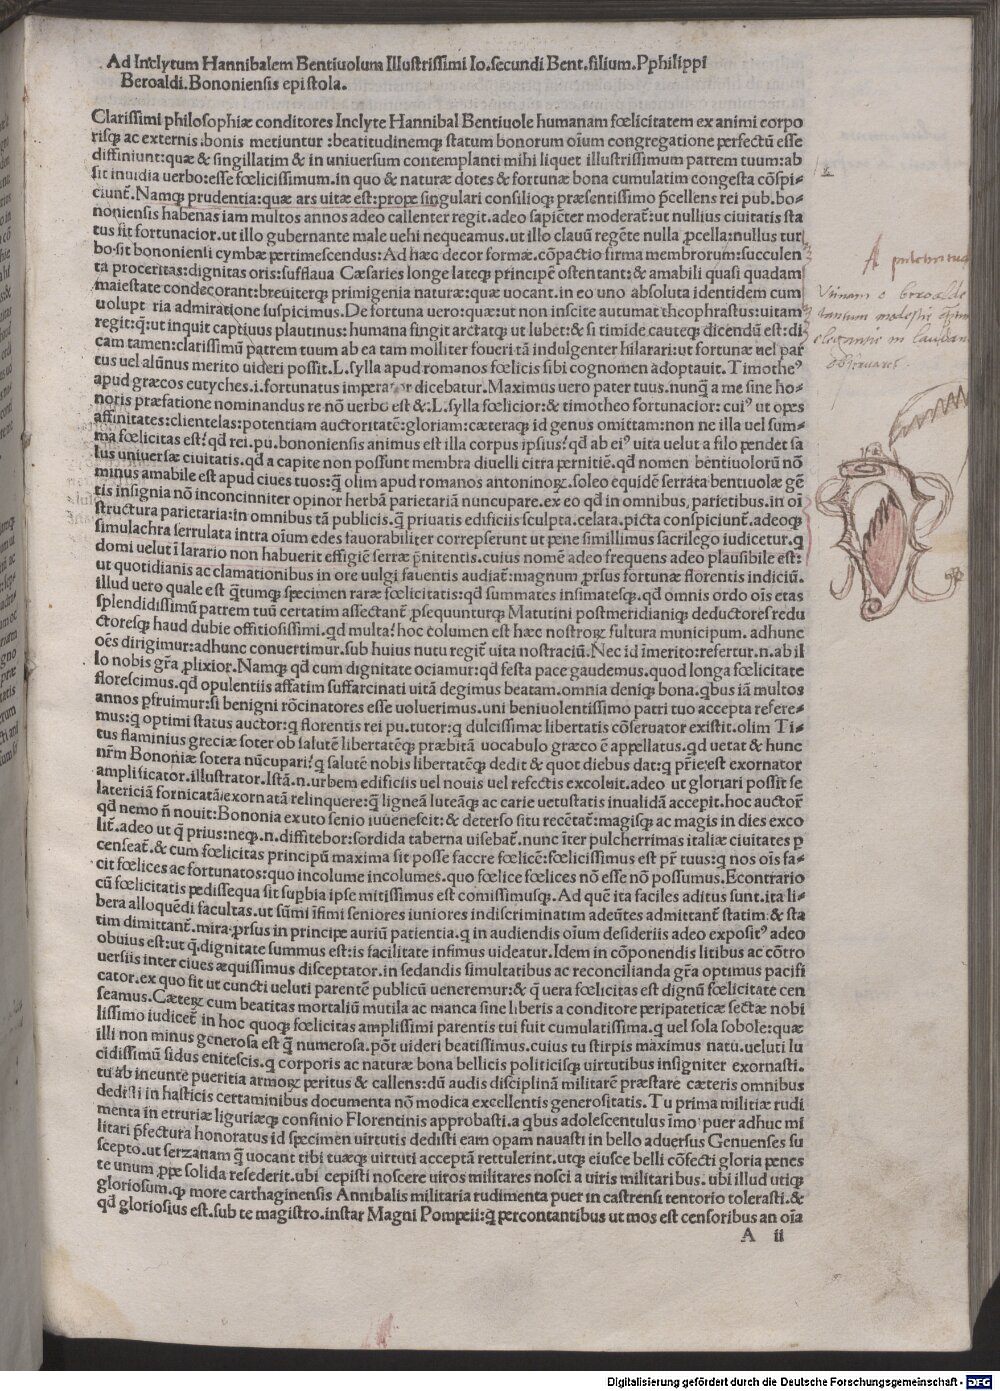 Ad Inclytum Hannibalem Bentiuolum Illustrissimi Io.secundi Bent.filium.Pphilippi
Beroaldi.Bononiensis epistola.
Clarissimi philosophiæ conditores Inclyte Hannibal Bentiuole humanam fœlicitatem ex animi corpo
risqꝫ ac externis.bonis metiuntur :beatitudinemqꝫ statum bonorum oĩum congregatione perfectũ esse
diffiniunt:quæ & singillatim & in uniuersum contemplanti mihi liquet illustrissimum patrem tuum:ab
sit inuidia uerbo:esse fœlicissimum.in quo & naturæ dotes & fortunæ bona cumulatim congesta cõspi-
ciunt̃.Namqꝫ prudentia:quæ ars uitæ est:prope singulari consilioqꝫ præsentissimo p̃cellens rei pub.bo-
noniensis habenas iam multos annos adeo callenter regit.adeo sapiẽter moderat̃:ut nullius ciuitatis sta
tus sit fortunacior.ut illo gubernante male uehi nequeamus.ut illo clauũ regẽte nulla ꝓcella:nullus tur
bo sit bononiensi cymbæ pertimescendus:Ad hæc decor formæ.cõpactio firma membrorum:succulen
ta proceritas:dignitas oris:sufflaua Cæsaries longe lateqꝫ principẽ ostentant:& amabili quasi quadam
maiestate condecorant:breuiterqꝫ primigenia naturæ:quæ uocant.in eo uno absoluta identidem cum
uolupt ria admiratione suspicimus.De fortuna uero:quæ:ut non inscite autumat theophrastus:uitam
regit:q̃:ut inquit captiuus plautinus: humana fingit arctatqꝫ ut lubet:& si timide cauteqꝫ dicendũ est:di
cam tamen:clarissimũ patrem tuum ab ea tam molliter foueri tã indulgenter hilarari:ut fortunæ uel par
tus uel alũnus merito uideri possit.L.sylla apud romanos fœlicis sibi cognomen adoptauit.Timotheꝰ
apud græcos eutyches.i.fortunatus imperator dicebatur.Maximus uero pater tuus.nunq̃ a me sine ho-
noris præfatione nominandus re nõ uerbo est &.L.sylla fœlicior:& timotheo fortunacior: cuiꝰ ut opes
affinitates:clientelas:potentiam auctoritatẽ:gloriam:cæteraqꝫ id genus omittam:non ne illa uel sum-
ma fœlicitas est?qđ rei.pu.bononiensis animus est illa corpus ipsius?qđ ab eiꝰ uita uelut a filo pendet sa
lus uniuersæ ciuitatis.qđ a capite non possunt membra diuelli citra pernitiẽ.qđ nomen bentiuolorũ nõ
minus amabile est apud ciues tuos:q̃ olim apud romanos antoninoꝝ.soleo equidẽ serrata bentiuolæ gẽ
tis insignia nõ inconcinniter opinor herbã parietariã nuncupare.ex eo qđ in omnibus, parietibus.in oĩ
structura parietaria:in omnibus tã publicis.q̃ priuatis edificiis sculpta.celata.picta conspiciunt̃.adeoqꝫ
simulachra serrulata intra oĩum edes fauorabiliter correpserunt ut pene simillimus sacrilego iudicetur.q
domi uelut ĩ larario non habuerit effigiẽ serræ p̃nitentis.cuius nomẽ adeo frequens adeo plausibile est:
ut quotidianis ac clamationibus in ore uulgi fauentis audiat̃:magnum ꝓrsus fortunæ florentis indiciũ.
illud uero quale est q̃tumqꝫ specimen raræ fœlicitatis:qđ summates infimatesqꝫ.qđ omnis ordo oĩs etas
splendidissimũ patrem tuũ certatim affectant̃ ꝓsequunturqꝫ Matutini postmeridianiqꝫ deductores redu
ctoresqꝫ haud dubie offitiosissimi.qđ multa?hoc columen est hæc nostroꝝ fultura municipum. adhunc
oẽs dirigimur:adhunc conuertimur.sub huius nutu regit̃ uita nostraciũ.Nec id ĩmerito:refertur.n.ab il
lo nobis gr̃a ꝓlixior.Namqꝫ qđ cum dignitate ociamur:qđ festa pace gaudemus.quod longa fœlicitate
florescimus.qđ opulentiis affatim suffarcinati uitã degimus beatam.omnia deniqꝫ bona.qbus iã multos
annos pfruimur:si benigni rõcinatores esse uoluerimus.uni beniuolentissimo patri tuo accepta refere-
mus:q optimi status auctor:q florentis rei pu.tutor:q dulcissimæ libertatis cõseruator existit.olim Ti-
tus flaminius greciæ soter ob salutẽ libertatẽqꝫ præbitã uocabulo græco ẽ appellatus.qđ uetat & hunc
nr̃m Bononiæ sotera nũcupari?q salutẽ nobis libertatẽqꝫ dedit & quot diebus dat:q pr̃ie;est exornator
amplificator.illustrator.Istã.n.urbem edificiis uel nouis uel refectis excoluit.adeo ut gloriari possit se
latericiã fornicatã:exornatã relinquere:q̃ ligneã luteãqꝫ ac carie uetustatis inualidã accepit.hoc auctor̃
qđ nemo ñ nouit:Bononia exuto senio iuuenescit:& deterso situ recẽtat̃:magisqꝫ ac magis in dies exco
lit̃.adeo ut q̃ prius:neqꝫ.n.diffitebor:sordida taberna uisebat̃.nunc ĩter pulcherrimas italiæ ciuitates p
censeat̃.& cum fœlicitas principũ maxima sit posse faccre fœlicẽ:fœlicissimus est pr̃ tuus:q nos oĩs fa-
cit fœlices ac fortunatos:quo incolume incolumes.quo fœlice fœlices nõ esse nõ possumus.Econtrario
cũ fœlicitatis pedissequa sit supbia ipse mitissimus est comissimusqꝫ.Ad quẽ ita faciles aditus sunt.ita li-
bera alloquẽdi facultas.ut sũmi ĩfimi seniores iuniores indiscriminatim adeũtes admittant̃ statim:& sta
tim dimittant̃.mira ꝓrsus in principe auriũ patientia.q in audiendis oĩum desideriis adeo expositꝰ adeo
obuius est:ut q̃.dignitate summus est:is facilitate infimus uideatur.Idem in cõponendis litibus ac cõtro
uersiis inter ciues æquissimus disceptator.in sedandis simultatibus ac reconcilianda gr̃a optimus pacifi
cator.ex quo fit ut cuncti ueluti parentẽ publicũ ueneremur:& q̃ uera fœlicitas est dignũ fœlicitate cen
seamus.Cæteꝝ cum beatitas mortaliũ mutila ac manca sine liberis a conditore peripateticæ sectæ nobi
lissimo iudicet̃ in hoc quoqꝫ fœlicitas amplissimi parentis tui fuit cumulatissima.q uel sola sobole:quæ
illi non minus generosa est q̃ numerosa.põt uideri beatissimus.cuius tu stirpis maximus natu.ueluti lu
cidissimũ sidus enitescis.q corporis ac naturæ bona bellicis politicisqꝫ uirtutibus insigniter exornasti.
tu ab ineunte pueritia armoꝝ peritus & callens:dũ audis disciplinã militarẽ præstare cæteris omnibus
dedisti in hasticis certaminibus documenta nõ modica excellentis generositatis.Tu prima militiæ rudi
menta in etruriæ liguriæqꝫ confinio Florentinis approbasti.a qbus adolescentulus ĩmo puer adhuc mi
litari p̃fectura honoratus id specimen uirtutis dedisti eam opam nauasti in bello aduersus Genuenses su
scepto.ut serzanam q̃ uocant tibi tuæqꝫ uirtuti acceptã rettulerint.utqꝫ eiusce belli cõfecti gloria penes
te unum ꝓpe solida resederit.ubi cepisti noscere uiros militares nosci a uiris militaribus.ubi illud utiqꝫ
gloriosum.qꝫ more carthaginensis Annibalis militaria rudimenta puer in castrensi tentorio tolerasti.&
qđ gloriosius est.sub te magistro.instar Magni Pompeii:q̃ percontantibus ut mos est censoribus an oĩa
A ii
Vtinam o beroalde
tantum modestie
elegantie in laudan
Digitalisierung gefördert durch die Deutsche Forschungsgemeinschaft - DFG